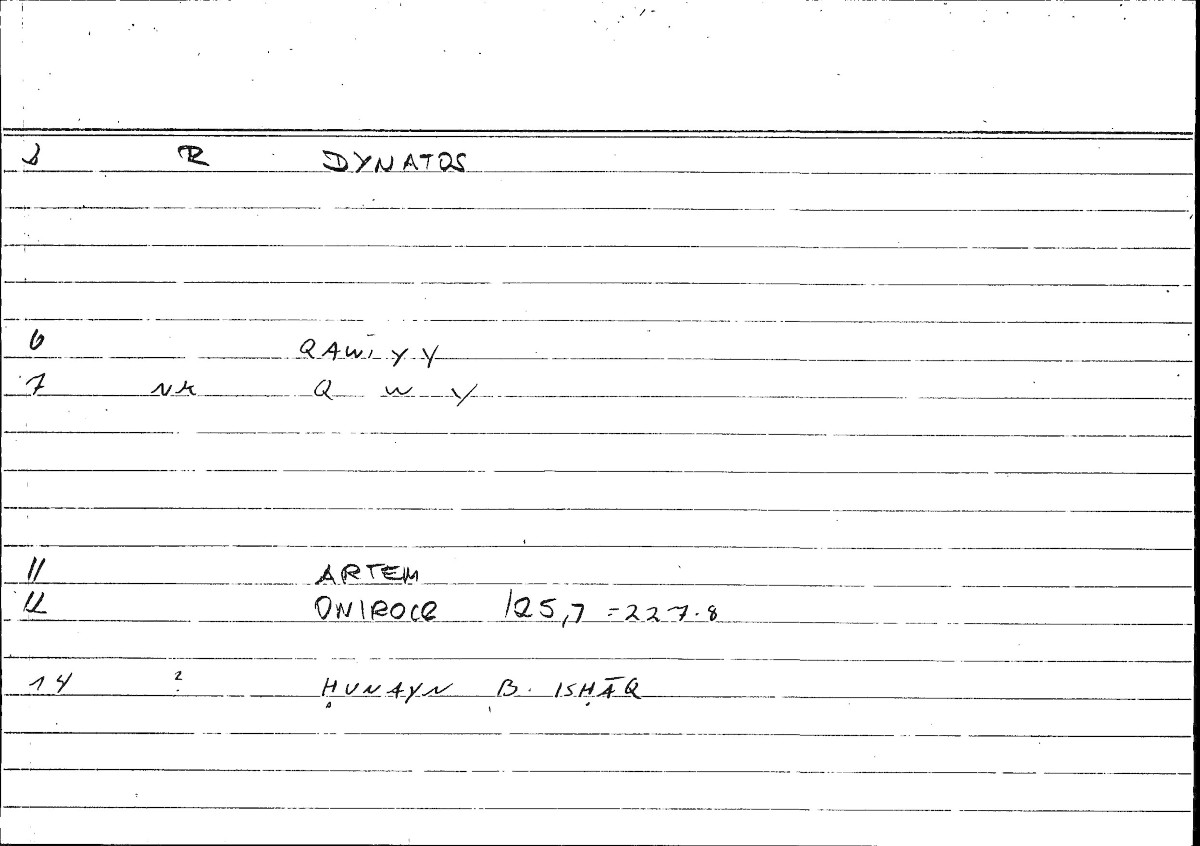 1 R DYNATOS
6 QAWĪYY
7 NK Q W Y
11 ARTEM
12 ONIROCR 125,7 = 227.8
14 ? ḤUNAYN B. ISḤĀQ